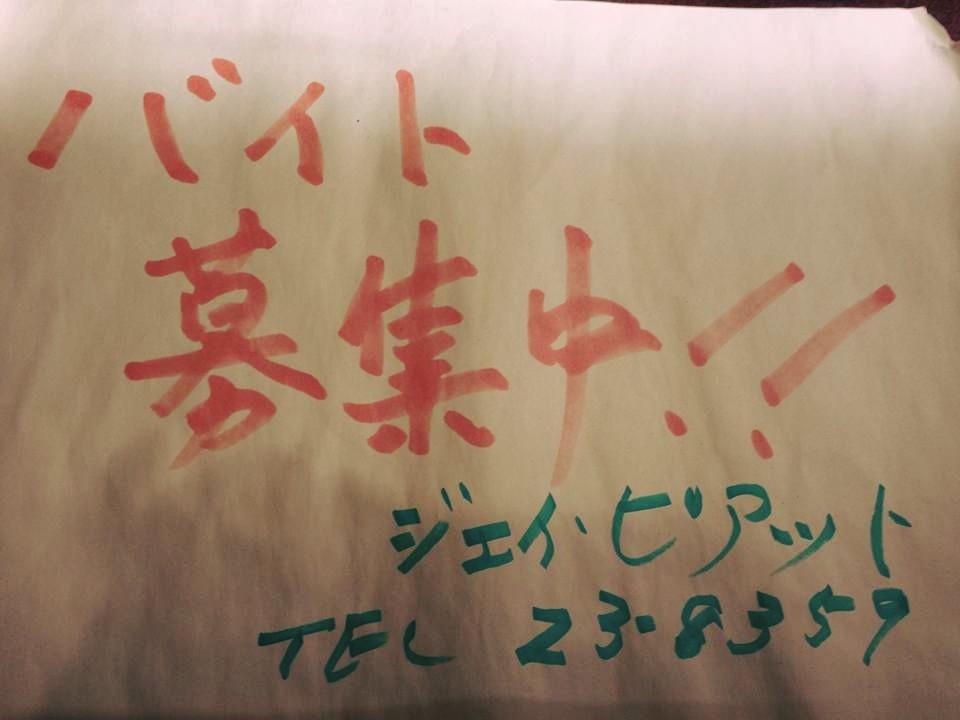 バイト
募集中!!
ジェイ・ピアット
TEL 23-8359